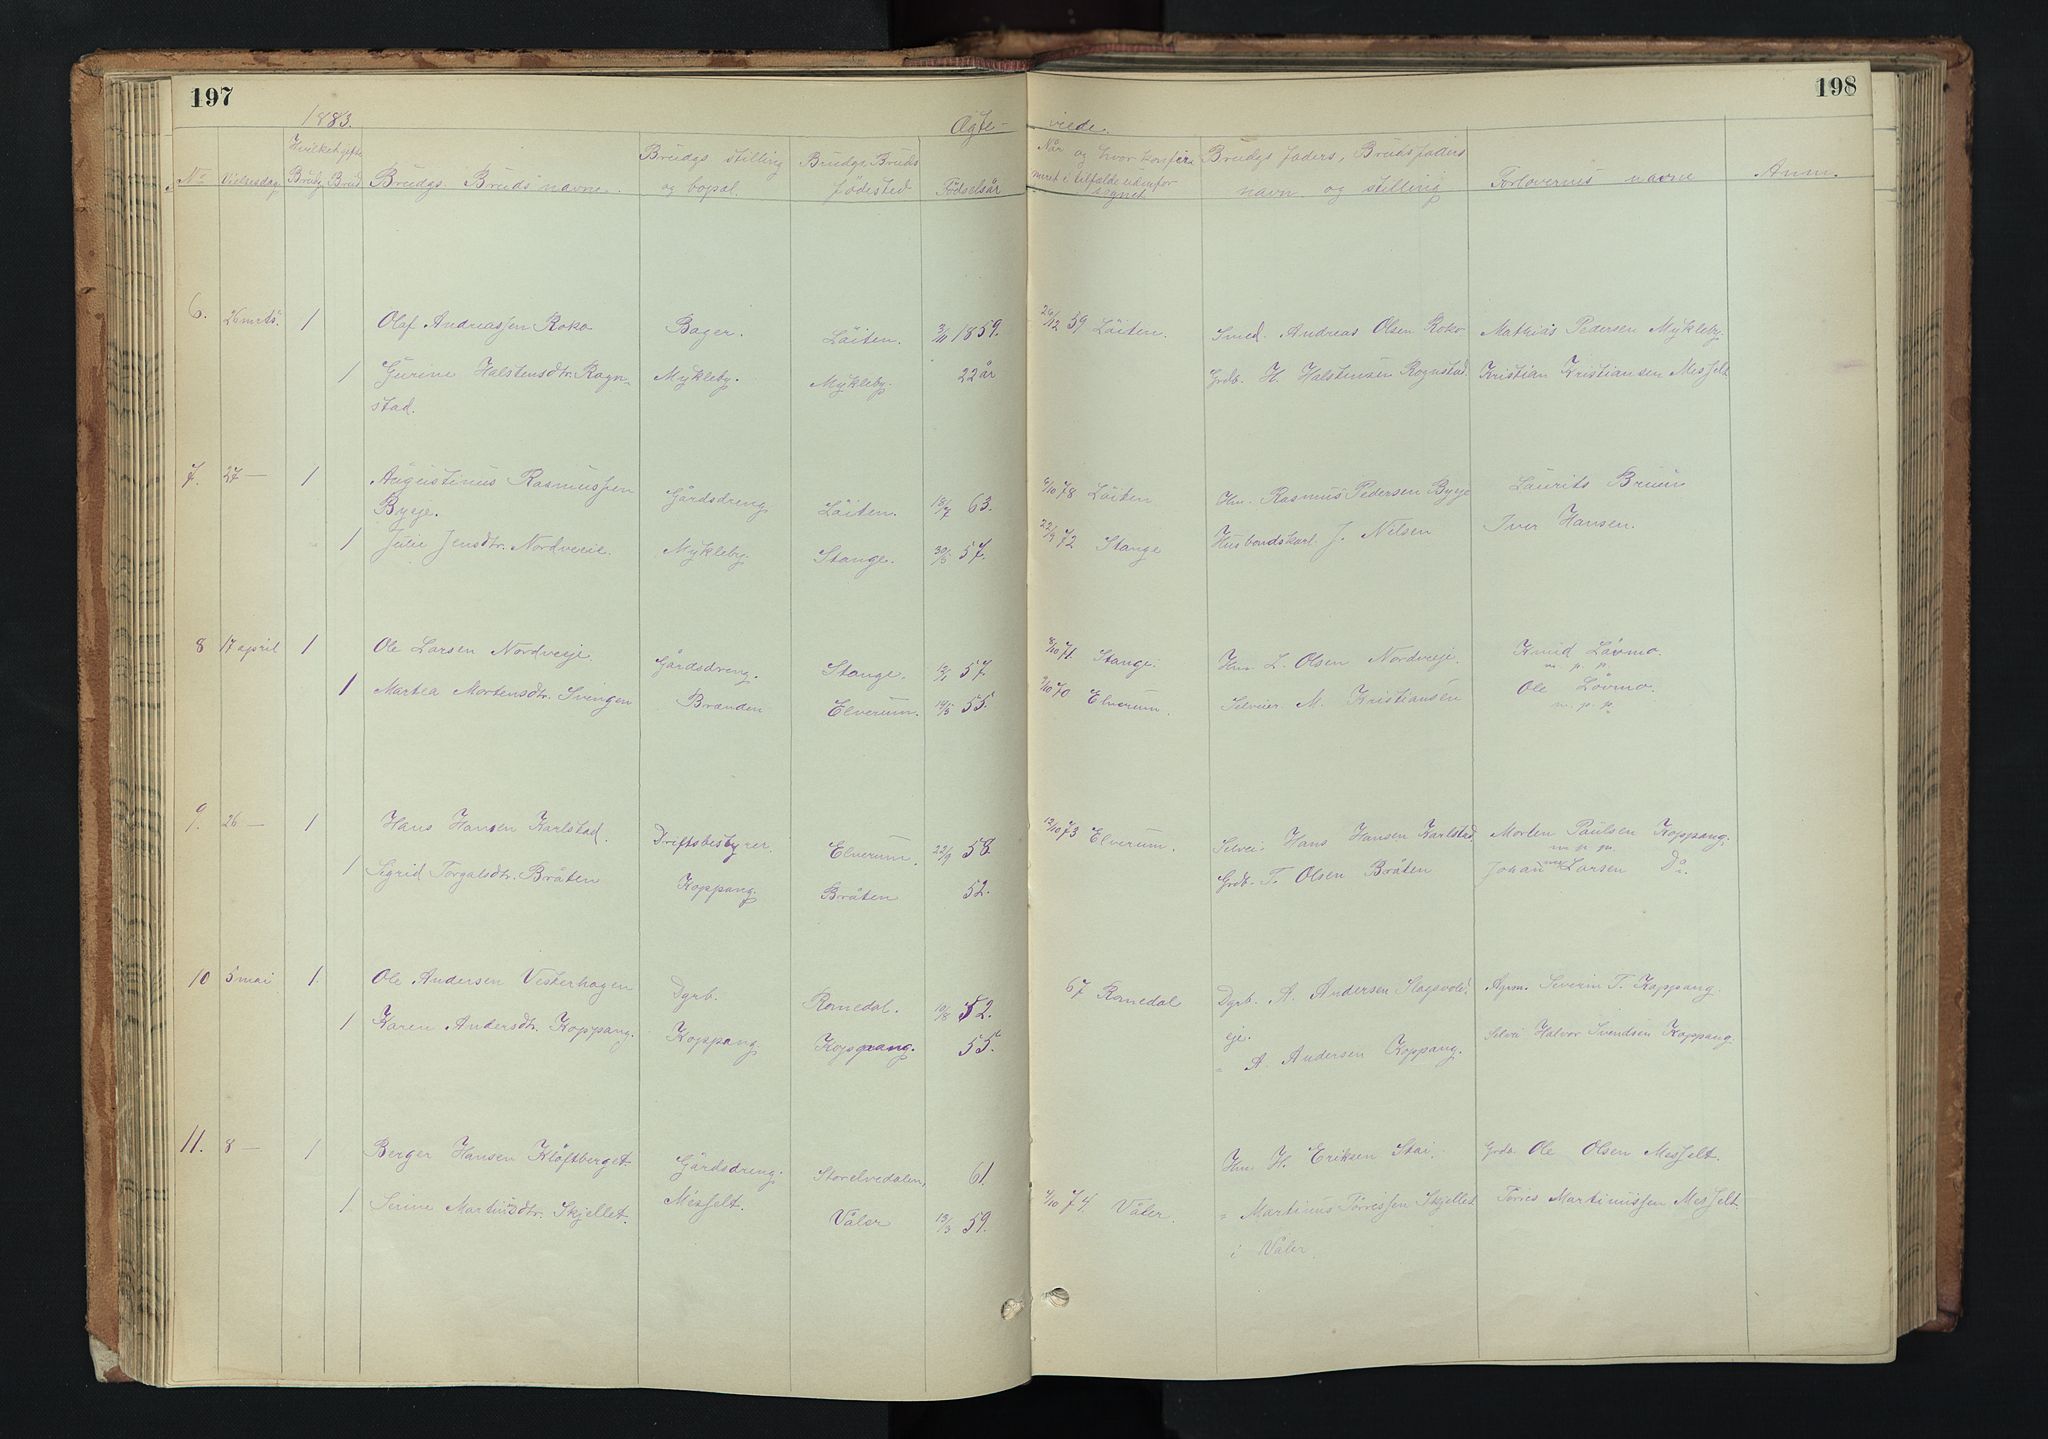 197
198
1883.
Ægte-
viede.
No
Vielsesdag
Hvilket gifte
Brudg.
Brud
Brudgs. Bruds navne.
Brudgs stilling
og bopæl.
Brudgs Bruds
fødested
Fødselsår
Når og hvor konfir-
meret i tilfælde udenfor
sognet
Brudgs faders, Bruds faders
navn og stilling
Forlovernes navne
Anm.
6. 26 mrts. 1 Olaf Andreassen Roko Bager. Löiten. 3/11 1859. 26/12 59 Löiten. Smed. Andreas Olsen Roko Mathias Pedersen Mykleby.
1 Gurine Halstensdtr. Rogn- Mykleby. Mykleby. 22 år Grdb. H. Halstensen Rognstad Kristian Kristiansen Messelt
stad.
7. 27 — 1 Augustinus Rasmussen Gårdsdreng. Löiten. 18/7 63. 6/10 78 Löiten Hm. Rasmus Pedersen Bysje Laurits Bruun
Bysje.
1 Julie Jensdtr. Nordveie. Mykleby. Stange. 30/5 57. 22/9 72 Stange Husbondskarl J. Nilsen Iver Hansen.
8 17 april 1 Ole Larsen Nordveje. Gårdsdreng. Stange. 12/1 57. 8/10 71. Stange. Hm L. Olsen Nordveje. Knud Lövmo.
m. p. p.
1 Martea Mortensdtr. Svingen Brænden Elverum. 19/5 55. 9/10 70 Elverum. Selveier M. Kristiansen Ole Lövmo.
m. p. p.
9. 26 — 1 Hans Hansen Karlstad. Driftsbestyrer. Elverum. 22/9 58. 12/10 73 Elverum. Selvei. Hans Hansen Karlstad. Morten Paulsen Koppang.
m. p. p.
1 Sigrid Torgalsdtr. Bråten Koppang. Bråten 52. Grdb. T. Olsen Bråten Johan Larsen Do.
10 5 mai 1. Ole Andersen Vesterhagen Dgrb. Romedal. 10/8 52. 67 Romedal Dgrb. A. Andersen Slagsvold. Severin T. Koppang.
eje.
1 Karen Andersdtr. Koppang. Koppang Koppang. 55. " A. Andersen Koppang. Selvei Halvor Svendsen Koppang.
11. 8 — 1 Berger Hansen Klöftberget Gårdsdreng. Storelvedalen, 61. Hm H. Eriksen Stai. Grdb. Ole Olsen Messelt.
1. Serine Martinsdtr. Skjellet. Messelt. Våler 13/3 59. 4/10 74 Våler. " Martinus Törrissen Skjellet Törres Martinussen Messelt
i Våler.